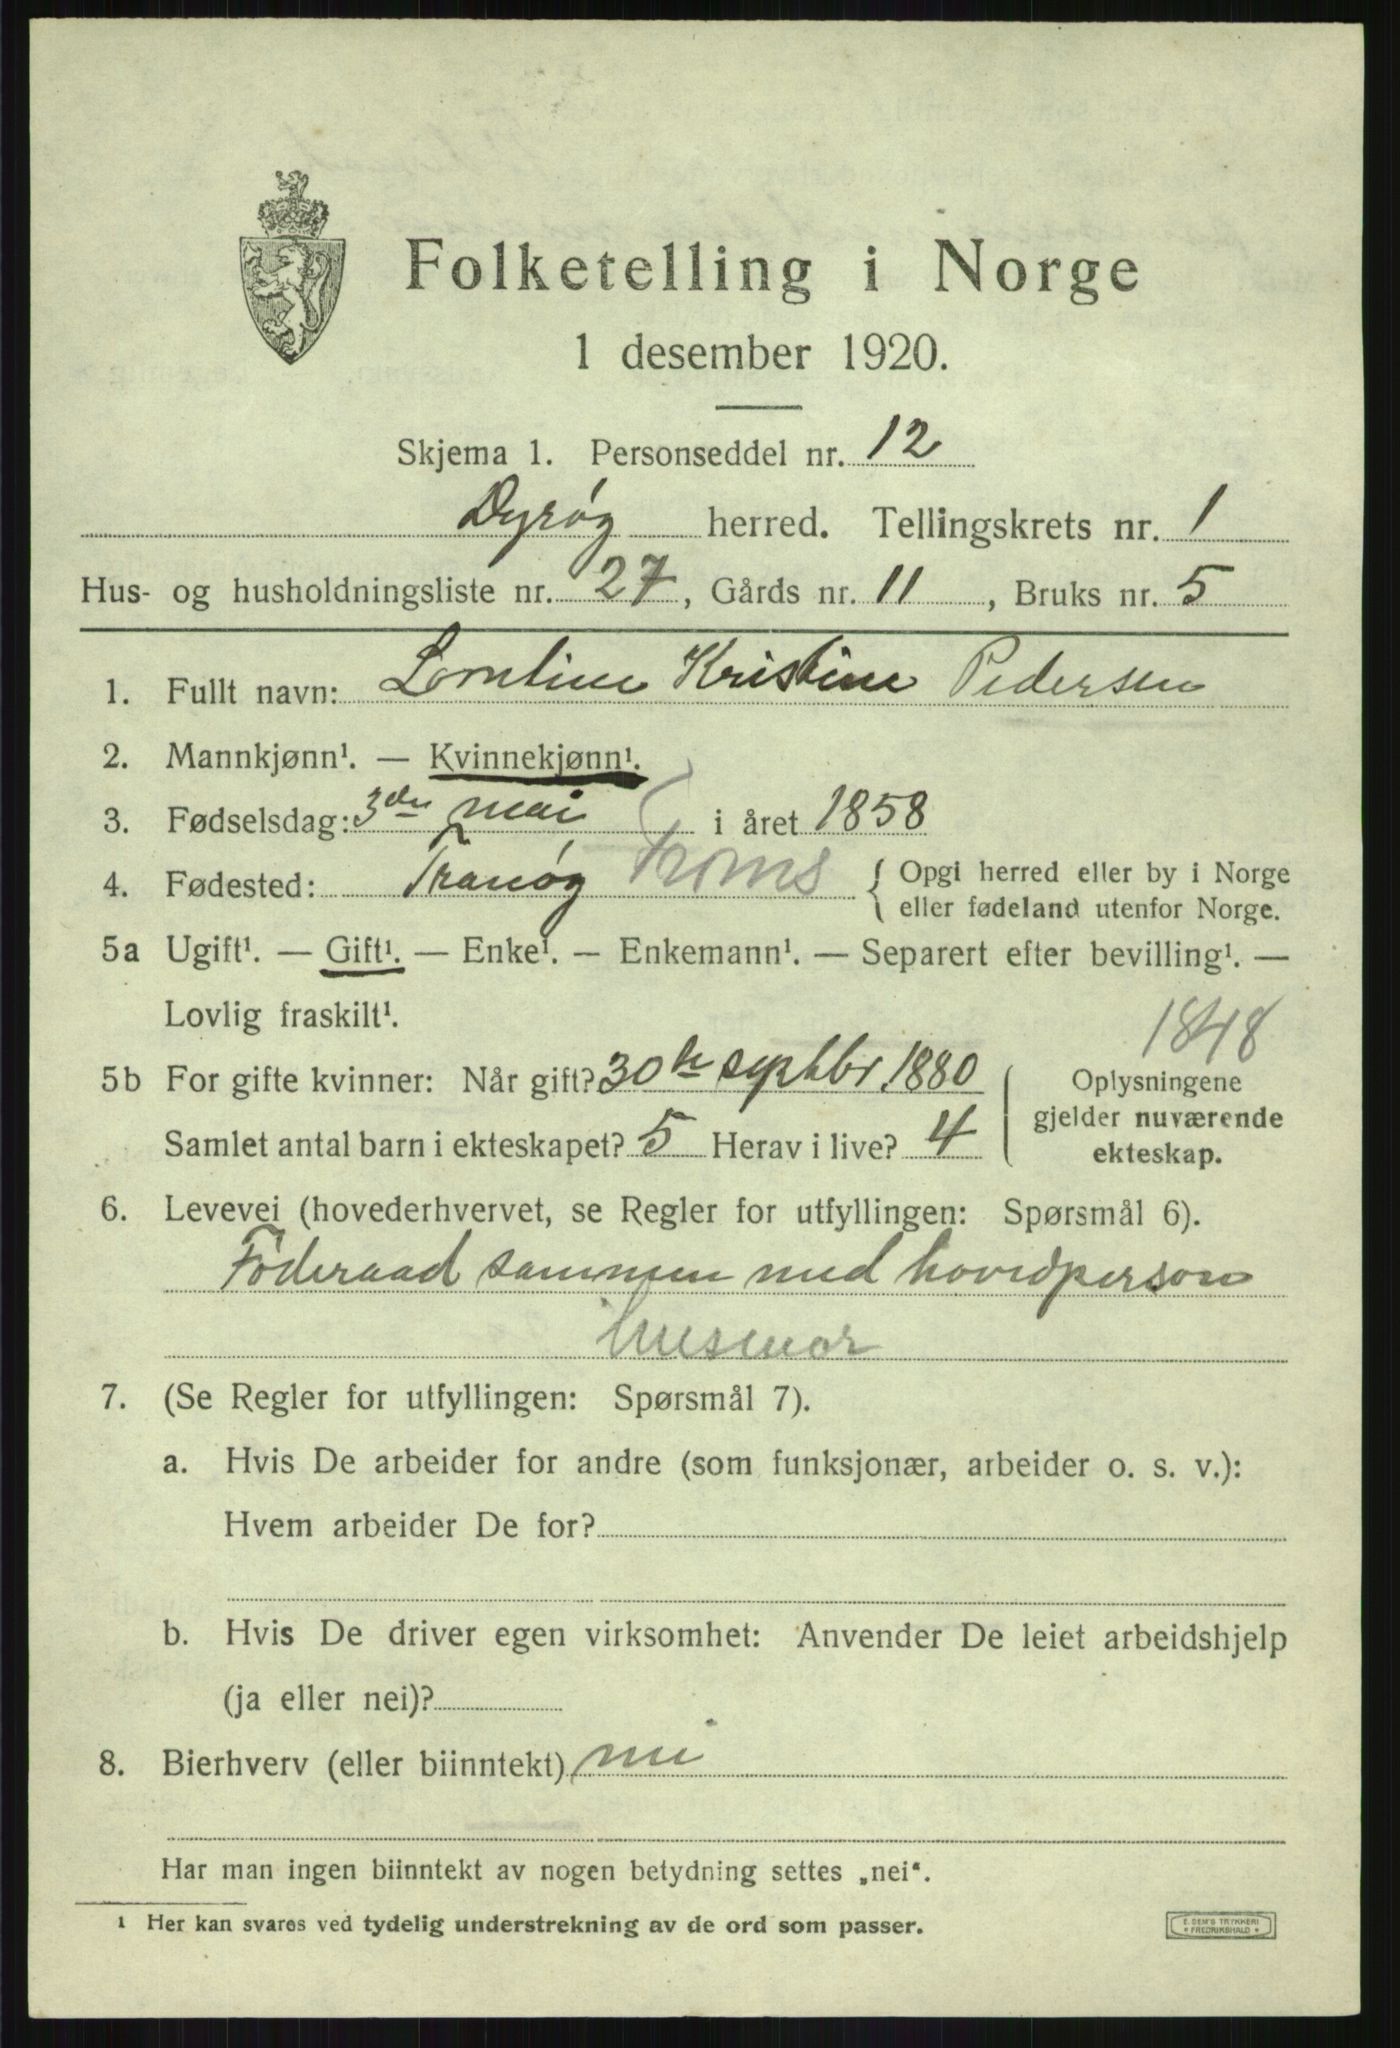 Folketelling i Norge
1 desember 1920.
Skjema 1. Personseddel nr. 12
Dyrøy herred. Tellingskrets nr. 1
Hus- og husholdningsliste nr. 27, Gårds nr. 11, Bruks nr. 5
1. Fullt navn: Lorntine Kristine Pedersen
2. Mannkjønn¹. — Kvinnekjønn¹.
3. Fødselsdag: 3die mai i året 1858
4. Fødested: Tranøy Troms { Opgi herred eller by i Norge
eller fødeland utenfor Norge.
5a Ugift¹. — Gift¹. — Enke¹. — Enkemann¹. — Separert efter bevilling¹. —
Lovlig fraskilt¹.
1848
5b For gifte kvinner: Når gift? 30te septbr. 1880
Samlet antal barn i ekteskapet? 5 Herav i live? 4
Oplysningene
gjelder nuværende
ekteskap.
6. Levevei (hovederhvervet, se Regler for utfyllingen: Spørsmål 6).
Föderaad sammen med hovedperson
husmor
7. (Se Regler for utfyllingen: Spørsmål 7).
a. Hvis De arbeider for andre (som funksjonær, arbeider o. s. v.):
Hvem arbeider De for?
b. Hvis De driver egen virksomhet: Anvender De leiet arbeidshjelp
(ja eller nei)?
8. Bierhverv (eller biinntekt) nei
Har man ingen biinntekt av nogen betydning settes „nei“.
¹ Her kan svares ved tydelig understrekning av de ord som passer.
E. SEM'S TRYKKERI
FREDRIKSHALD